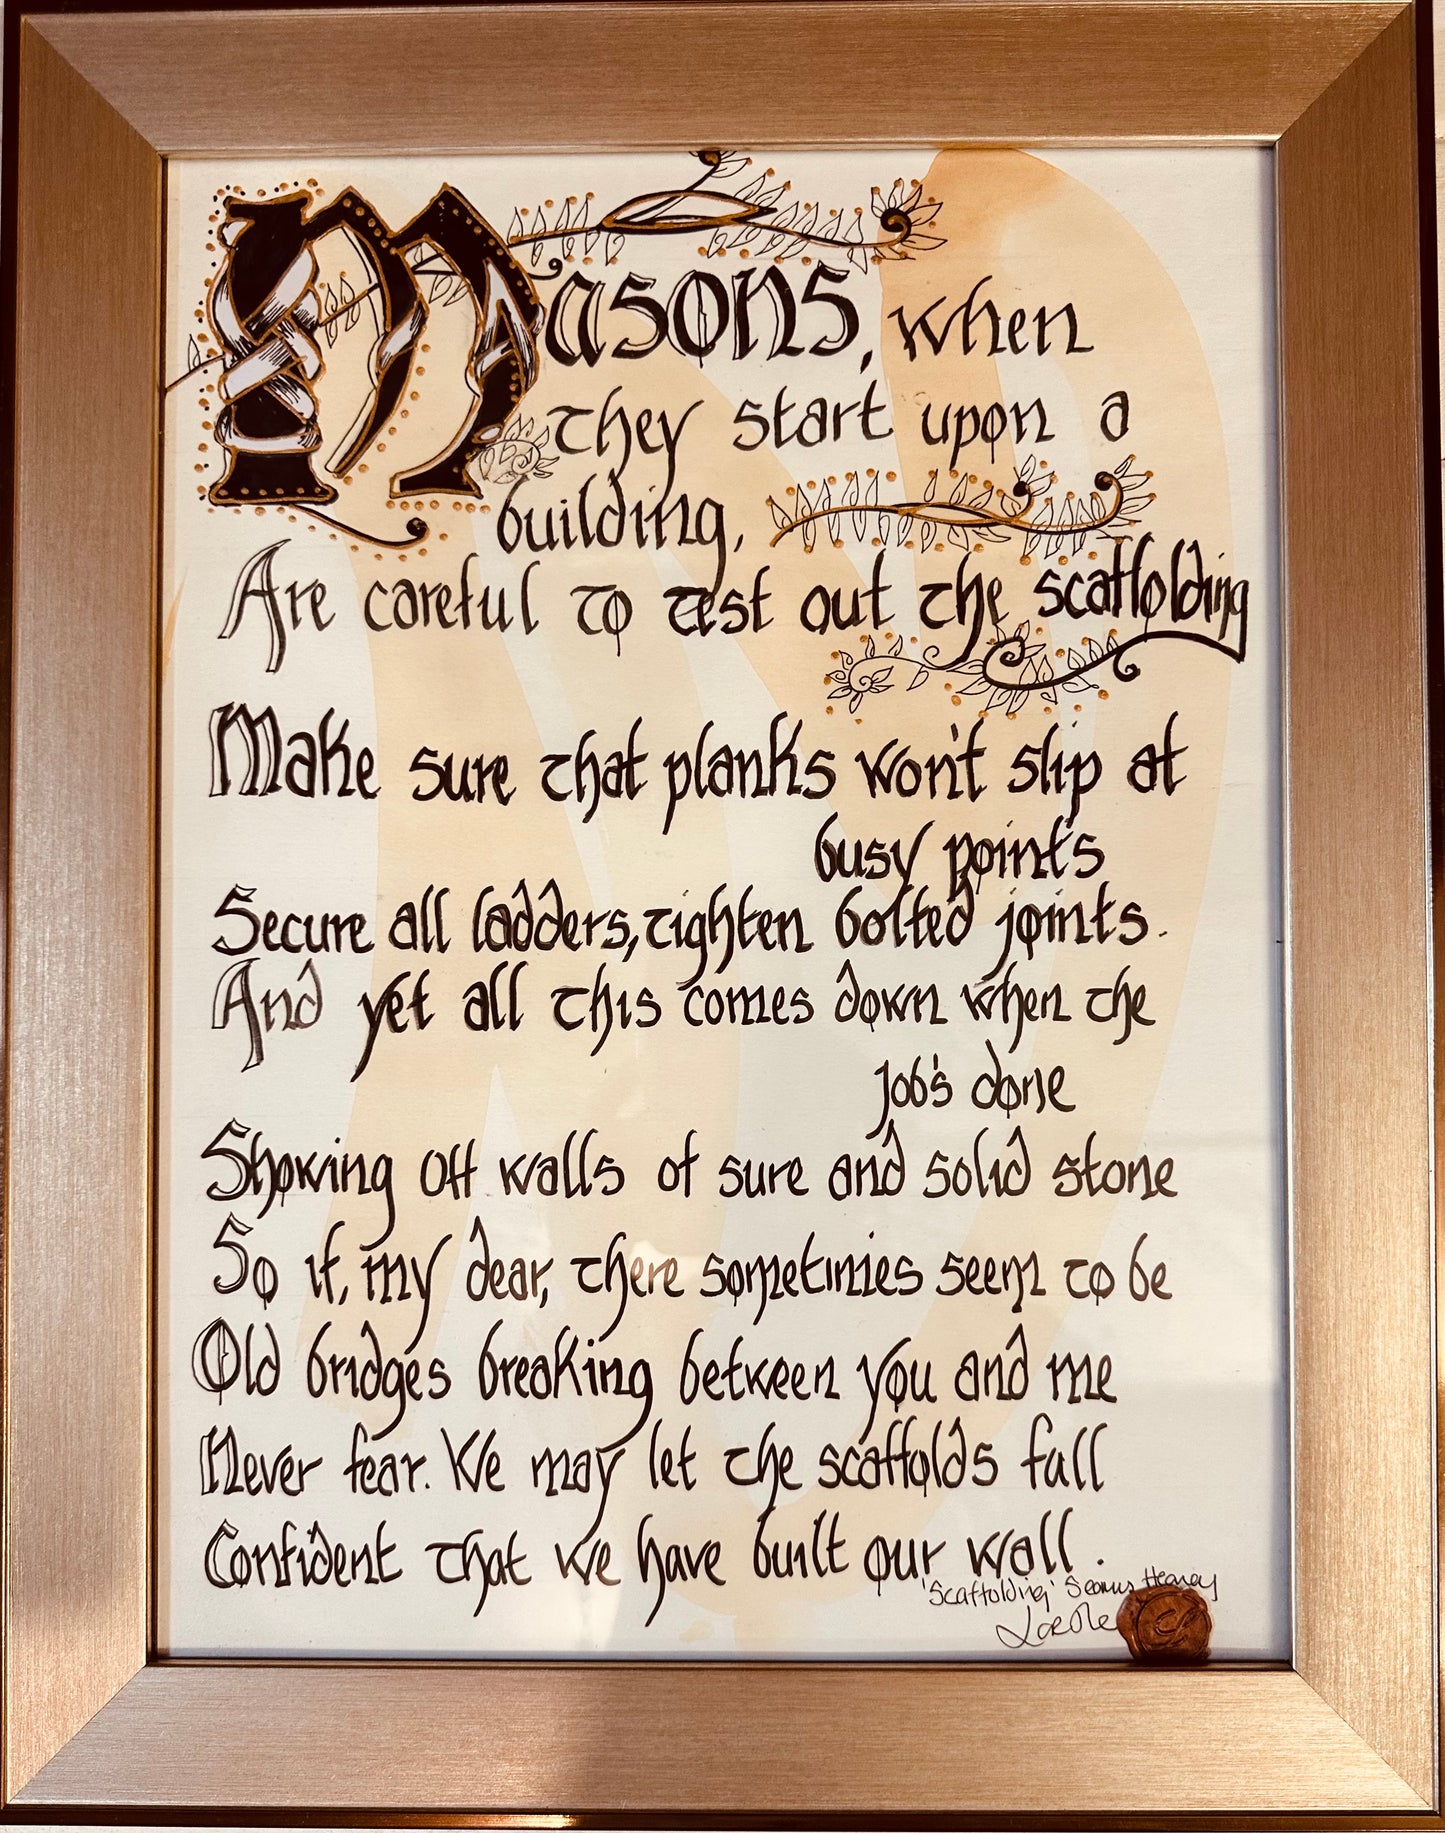 Masons, when
they start upon a
building,
Are careful to test out the scaffolding
Make sure that planks won't slip at
busy points
Secure all ladders, tighten bolted joints.
And yet all this comes down when the
job's done
Showing off walls of sure and solid stone
So if, my dear, there sometimes seem to be
Old bridges breaking between you and me
Never fear. We may let the scaffolds fall
Confident that we have built our wall.
'Scaffolding' Seamus Heaney